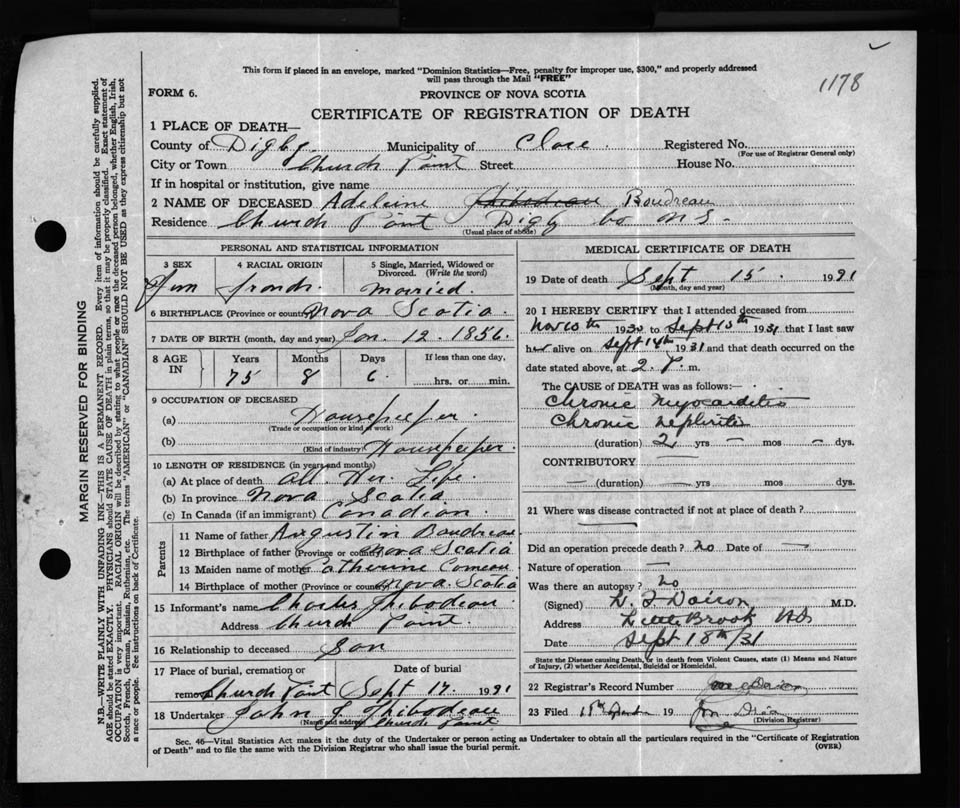 1178
This form if placed in an envelope, marked "Dominion Statistics—Free, penalty for improper use, $300," and properly addressed
will pass through the Mail "FREE"
FORM 6.
PROVINCE OF NOVA SCOTIA
CERTIFICATE OF REGISTRATION OF DEATH
1 PLACE OF DEATH—
County of Digby Municipality of Clare Registered No.
(For use of Registrar General only)
City or Town Church Point Street House No.
If in hospital or institution, give name
2 NAME OF DECEASED Adeleine Thibodeau Boudreau
Residence Church Point Digby Co N S
(Usual place of abode)
PERSONAL AND STATISTICAL INFORMATION
3 SEX 4 RACIAL ORIGIN 5 Single, Married, Widowed or
Divorced. (Write the word)
Fem French Married
6 BIRTHPLACE (Province or country) Nova Scotia
7 DATE OF BIRTH (month, day and year) Jan. 12. 1856
8 AGE IN Years Months Days If less than one day,
75 8 6 hrs. or min.
9 OCCUPATION OF DECEASED
(a) Housekeeper
(Trade or occupation or kind of work)
(b) Housekeeper
(Kind of industry)
10 LENGTH OF RESIDENCE (in years and months)
(a) At place of death All Her Life
(b) In province Nova Scotia
(c) In Canada (if an immigrant) Canadian
Parents
11 Name of father Augustin Boudreau
12 Birthplace of father (Province or country) Nova Scotia
13 Maiden name of mother Catherine Comeau
14 Birthplace of mother (Province or country) Nova Scotia
15 Informant's name Charles Thibodeau
Address Church Point
16 Relationship to deceased Son
17 Place of burial, cremation or Date of burial
removal Church Point Sept 17. 1931
18 Undertaker John J Thibodeau
(Name and address) Church Point
MEDICAL CERTIFICATE OF DEATH
19 Date of death Sept 15 1931
(Month, day and year)
20 I HEREBY CERTIFY that I attended deceased from
Nov 10th 1930 to Sept 15th 1931 that I last saw
her alive on Sept 14th 1931 and that death occurred on the
date stated above, at 2 P. m.
The CAUSE of DEATH was as follows:—
Chronic Myocarditis
Chronic Nephritis
(duration) 2 yrs — mos — dys.
CONTRIBUTORY —
— (duration) — yrs — mos — dys.
21 Where was disease contracted if not at place of death?
Did an operation precede death? no Date of —
Nature of operation —
Was there an autopsy? no
(Signed) M.D.
Address Little Brook NS
Date Sept 18th/31
State the Disease causing Death, or in death from Violent Causes, state (1) Means and Nature
of Injury, (2) whether Accidental, Suicidal or Homicidal.
22 Registrar's Record Number
23 Filed 19
(Division Registrar)
Sec. 46—Vital Statistics Act makes it the duty of the Undertaker or person acting as Undertaker to obtain all the particulars required in the "Certificate of Registration
of Death" and to file the same with the Division Registrar who shall issue the burial permit. (OVER)
MARGIN RESERVED FOR BINDING
N.B.—WRITE PLAINLY WITH UNFADING INK—THIS IS A PERMANENT RECORD. Every item of information should be carefully supplied.
AGE should be stated EXACTLY. PHYSICIANS should STATE CAUSE OF DEATH in plain terms, so that it may be properly classified. Exact statement of
OCCUPATION is very important. RACIAL ORIGIN will be described by stating to what people or race the deceased person belonged, whether English, Irish,
Scotch, French, German, Russian, Ruthenian, etc. The terms "AMERICAN" or "CANADIAN" SHOULD NOT BE USED as they express citizenship but not
a race or people. See instructions on back of Certificate.